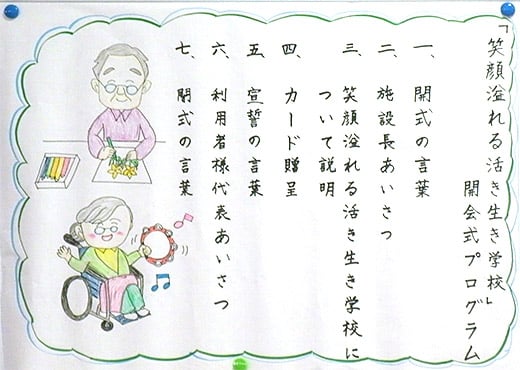 「笑顔溢れる活き生き学校」
開会式プログラム
一、開式の言葉
二、施設長あいさつ
三、笑顔溢れる活き生き学校に
ついて説明
四、カード贈呈
五、宣誓の言葉
六、利用者様代表あいさつ
七、閉式の言葉